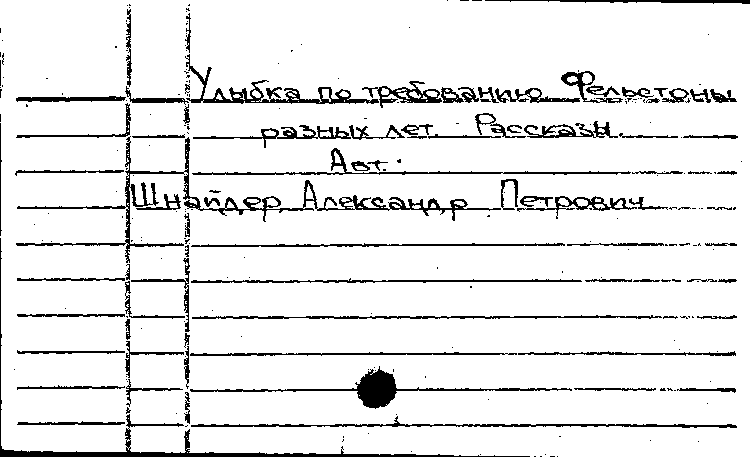 Улыбка по требованию. Фельетоны
разных лет. Рассказы.
Авт.:
Шнайдер, Александр Петрович